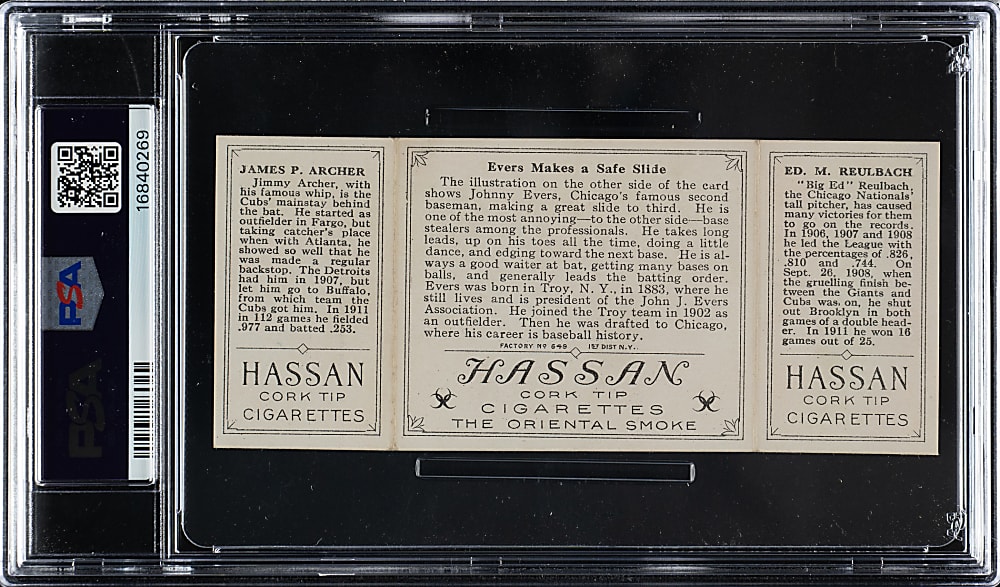 16840269
PSA
PSA
JAMES P. ARCHER
Jimmy Archer, with
his famous whip, is the
Cubs' mainstay behind
the bat. He started as
outfielder in Fargo, but
taking catcher's place
when with Atlanta, he
showed so well that he
was made a regular
backstop. The Detroits
had him in 1907, but
let him go to Buffalo,
from which team the
Cubs got him. In 1911
in 112 games he fielded
.977 and batted .253.
HASSAN
CORK TIP
CIGARETTES
Evers Makes a Safe Slide
The illustration on the other side of the card
shows Johnny Evers, Chicago's famous second
baseman, making a great slide to third. He is
one of the most annoying—to the other side—base
stealers among the professionals. He takes long
leads, up on his toes all the time, doing a little
dance, and edging toward the next base. He is al-
ways a good waiter at bat, getting many bases on
balls, and generally leads the batting order.
Evers was born in Troy, N. Y., in 1883, where he
still lives and is president of the John J. Evers
Association. He joined the Troy team in 1902 as
an outfielder. Then he was drafted to Chicago,
where his career is baseball history.
FACTORY Nº 649 1ST DIST N.Y.
HASSAN
CORK TIP
CIGARETTES
THE ORIENTAL SMOKE
ED. M. REULBACH
"Big Ed" Reulbach,
the Chicago Nationals'
tall pitcher, has caused
many victories for them
to go on the records.
In 1906, 1907 and 1908
he led the League with
the percentages of .826,
.810 and .744. On
Sept. 26, 1908, when
the gruelling finish be-
tween the Giants and
Cubs was on, he shut
out Brooklyn in both
games of a double head-
er. In 1911 he won 16
games out of 25.
HASSAN
CORK TIP
CIGARETTES